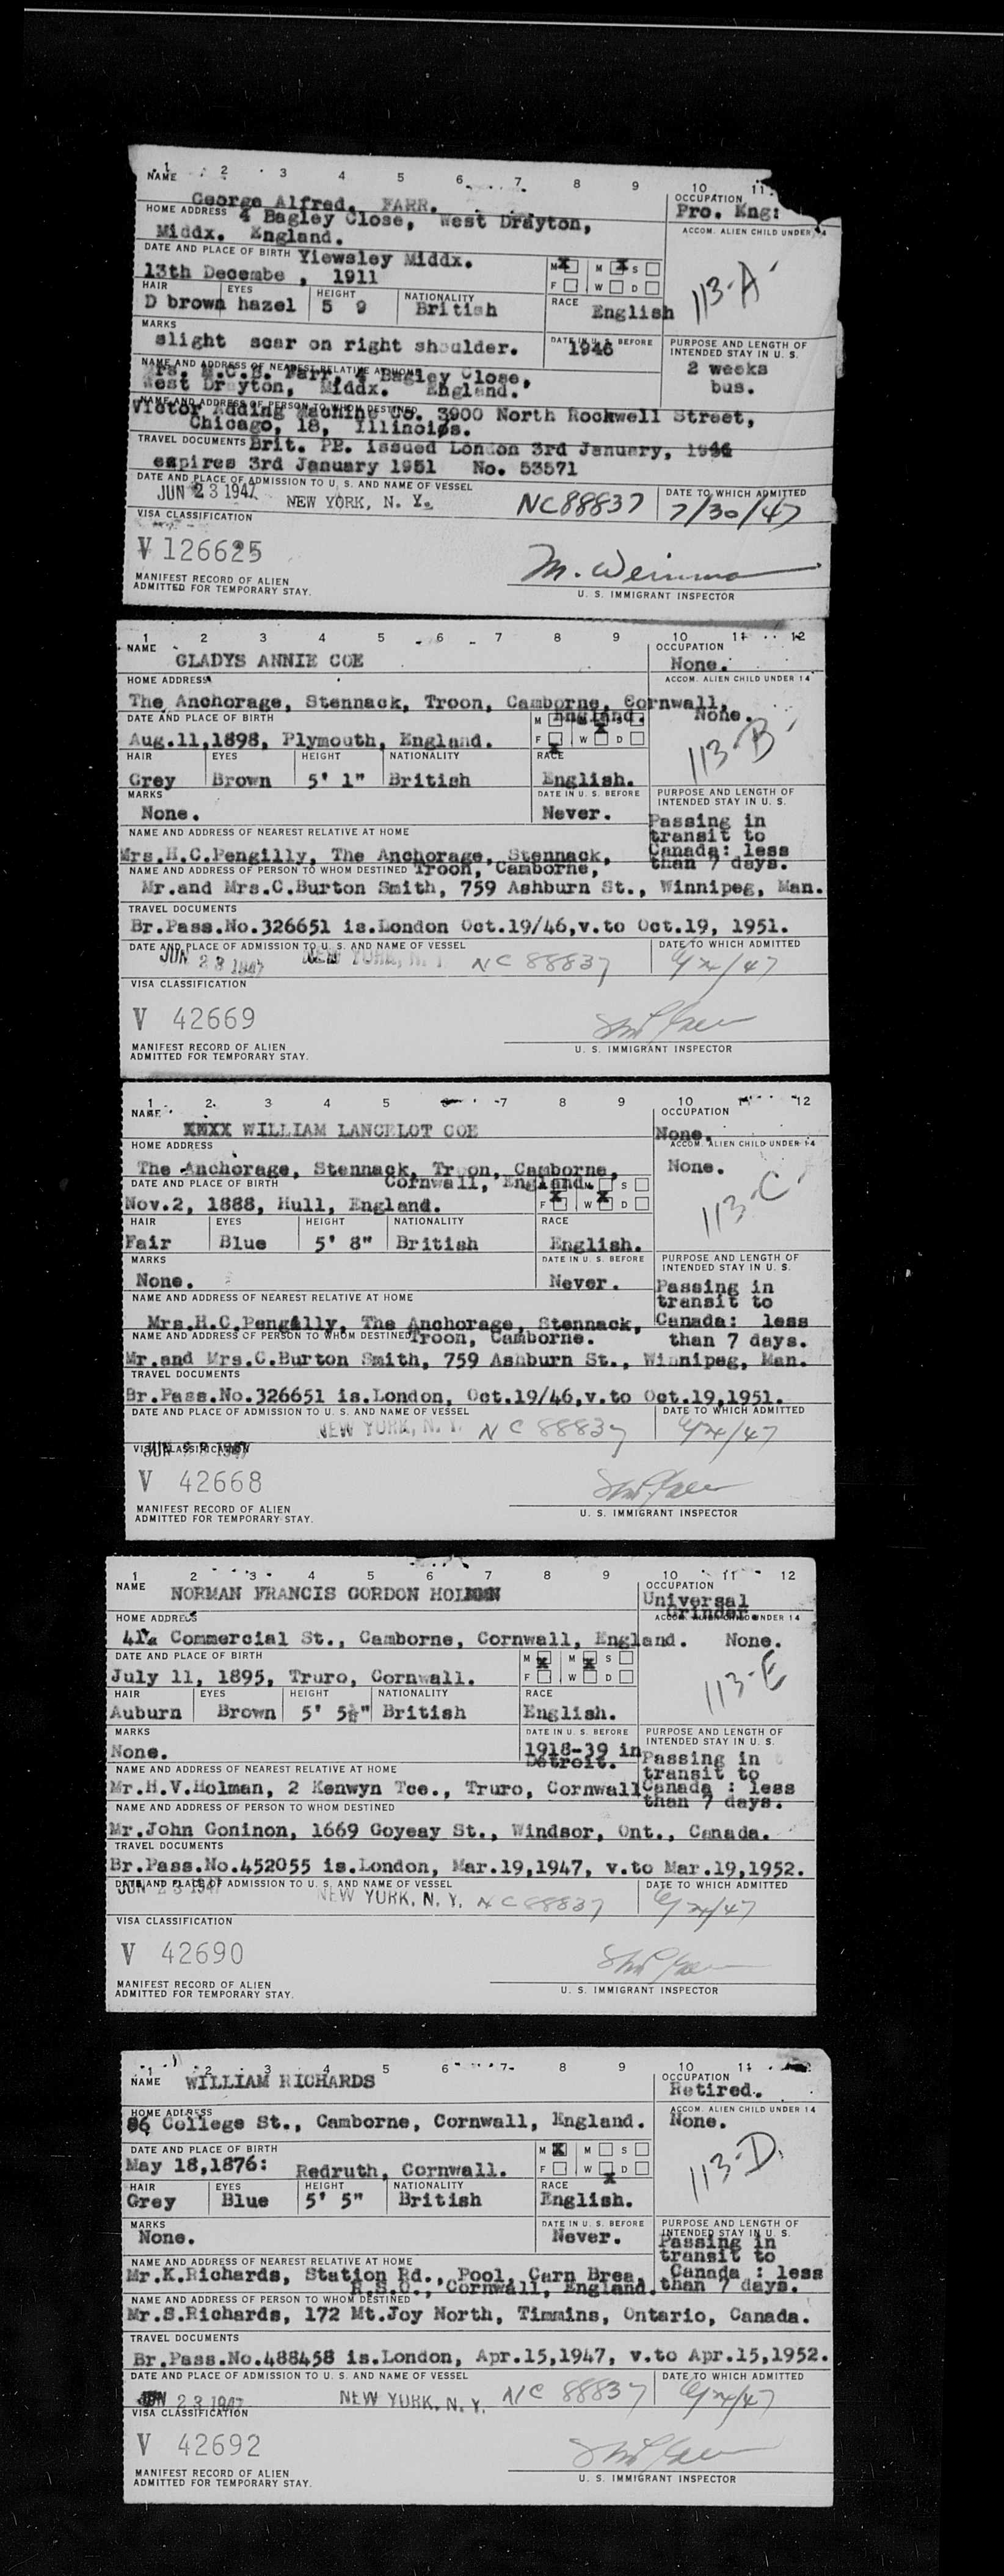 1 2 3 4 5 6 7 8 9 10 11
NAME
George Alfred. FARR.
OCCUPATION
Pro. Eng:
HOME ADDRESS 4 Bagley Close, West Drayton,
Middx. England.
ACCOM. ALIEN CHILD UNDER 14
DATE AND PLACE OF BIRTH Yiewsley Middx.
13th Decembe , 1911
M X M X S
F W D
113-A
HAIR EYES HEIGHT NATIONALITY RACE
D brown hazel 5 9 British English
MARKS
slight scar on right shoulder.
DATE IN U. S. BEFORE
1946
PURPOSE AND LENGTH OF
INTENDED STAY IN U. S.
2 weeks
bus.
NAME AND ADDRESS OF NEAREST RELATIVE AT HOME
Mrs. M.C.B. Farr, 4 Bagley Close,
West Drayton, Middx. England.
NAME AND ADDRESS OF PERSON TO WHOM DESTINED
Victor Adding Machine Co. 3900 North Rockwell Street,
Chicago, 18, Illinois.
TRAVEL DOCUMENTS Brit. PP. issued London 3rd January, 1946
expires 3rd January 1951 No. 53571
DATE AND PLACE OF ADMISSION TO U. S. AND NAME OF VESSEL
JUN 23 1947 NEW YORK, N. Y. NC88837
DATE TO WHICH ADMITTED
7/30/47
VISA CLASSIFICATION
V 126625
M. Weinman
MANIFEST RECORD OF ALIEN
ADMITTED FOR TEMPORARY STAY.
U. S. IMMIGRANT INSPECTOR
1 2 3 4 5 6 7 8 9 10 11 12
NAME
GLADYS ANNIE COE
OCCUPATION
None.
HOME ADDRESS
ACCOM. ALIEN CHILD UNDER 14
The Anchorage, Stennack, Troon, Camborne, Cornwall,
England.
None.
DATE AND PLACE OF BIRTH
Aug.11,1898, Plymouth, England.
M M X S
F X W D
113-B
HAIR EYES HEIGHT NATIONALITY RACE
Grey Brown 5' 1" British English.
MARKS
None.
DATE IN U. S. BEFORE
Never.
PURPOSE AND LENGTH OF
INTENDED STAY IN U. S.
Passing in
transit to
Canada: less
than 7 days.
NAME AND ADDRESS OF NEAREST RELATIVE AT HOME
Mrs.H.C.Pengilly, The Anchorage, Stennack,
Troon, Camborne,
NAME AND ADDRESS OF PERSON TO WHOM DESTINED
Mr.and Mrs.C.Burton Smith, 759 Ashburn St., Winnipeg, Man.
TRAVEL DOCUMENTS
Br.Pass.No.326651 is.London Oct.19/46,v.to Oct.19, 1951.
DATE AND PLACE OF ADMISSION TO U. S. AND NAME OF VESSEL
JUN 23 1947 NEW YORK, N. Y. NC 88837
DATE TO WHICH ADMITTED
VISA CLASSIFICATION
V 42669
MANIFEST RECORD OF ALIEN
ADMITTED FOR TEMPORARY STAY.
U. S. IMMIGRANT INSPECTOR
1 2 3 4 5 7 8 9 10 11 12
NAME
XMXX WILLIAM LANCELOT COE
OCCUPATION
None.
HOME ADDRESS
ACCOM. ALIEN CHILD UNDER 14
The Anchorage, Stennack, Troon, Camborne,
Cornwall, England.
None.
DATE AND PLACE OF BIRTH
Nov.2, 1888, Hull, England.
S
F W D
113-C
HAIR EYES HEIGHT NATIONALITY RACE
Fair Blue 5' 8" British English.
MARKS
None.
DATE IN U. S. BEFORE
Never.
PURPOSE AND LENGTH OF
INTENDED STAY IN U. S.
Passing in
transit to
Canada: less
than 7 days.
NAME AND ADDRESS OF NEAREST RELATIVE AT HOME
Mrs.H.C.Pengilly, The Anchorage, Stennack,
Troon, Camborne.
NAME AND ADDRESS OF PERSON TO WHOM DESTINED
Mr.and Mrs.C.Burton Smith, 759 Ashburn St., Winnipeg, Man.
TRAVEL DOCUMENTS
Br.Pass.No.326651 is.London, Oct.19/46,v.to Oct.19,1951.
DATE AND PLACE OF ADMISSION TO U. S. AND NAME OF VESSEL
NEW YORK, N. Y. NC 88837
DATE TO WHICH ADMITTED
VISA CLASSIFICATION
V 42668
MANIFEST RECORD OF ALIEN
ADMITTED FOR TEMPORARY STAY.
U. S. IMMIGRANT INSPECTOR
1 2 3 4 5 6 7 8 9 10 11 12
NAME
NORMAN FRANCIS GORDON HOLMAN
OCCUPATION
Universal
Grinder.
HOME ADDRESS
ACCOM. ALIEN CHILD UNDER 14
41a Commercial St., Camborne, Cornwall, England. None.
DATE AND PLACE OF BIRTH
July 11, 1895, Truro, Cornwall.
M X M X S
F W D
113-E
HAIR EYES HEIGHT NATIONALITY RACE
Auburn Brown 5' 5½" British English.
MARKS
None.
DATE IN U. S. BEFORE
1918-39 in
Detroit.
PURPOSE AND LENGTH OF
INTENDED STAY IN U. S.
Passing in
transit to
Canada : less
than 7 days.
NAME AND ADDRESS OF NEAREST RELATIVE AT HOME
Mr.H.V.Holman, 2 Kenwyn Tce., Truro, Cornwall
NAME AND ADDRESS OF PERSON TO WHOM DESTINED
Mr.John Goninon, 1669 Goyeay St., Windsor, Ont., Canada.
TRAVEL DOCUMENTS
Br.Pass.No.452055 is.London, Mar.19,1947, v.to Mar.19,1952.
DATE AND PLACE OF ADMISSION TO U. S. AND NAME OF VESSEL
JUN 23 1947 NEW YORK, N. Y. NC 88837
DATE TO WHICH ADMITTED
VISA CLASSIFICATION
V 42690
MANIFEST RECORD OF ALIEN
ADMITTED FOR TEMPORARY STAY.
U. S. IMMIGRANT INSPECTOR
1 2 3 4 5 6 7 8 9 10 11
NAME WILLIAM RICHARDS
OCCUPATION
Retired.
HOME ADDRESS
86 College St., Camborne, Cornwall, England.
ACCOM. ALIEN CHILD UNDER 14
None.
DATE AND PLACE OF BIRTH
May 18,1876: Redruth, Cornwall.
M X M S
F W X D
113-D.
HAIR EYES HEIGHT NATIONALITY RACE
Grey Blue 5' 5" British English.
MARKS
None.
DATE IN U. S. BEFORE
Never.
PURPOSE AND LENGTH OF
INTENDED STAY IN U. S.
Passing in
transit to
Canada : less
than 7 days.
NAME AND ADDRESS OF NEAREST RELATIVE AT HOME
Mr.K.Richards, Station Rd., Pool, Carn Brea,
R.S.O., Cornwall, England.
NAME AND ADDRESS OF PERSON TO WHOM DESTINED
Mr.S.Richards, 172 Mt.Joy North, Timmins, Ontario, Canada.
TRAVEL DOCUMENTS
Br.Pass.No.488458 is.London, Apr.15,1947, v.to Apr.15,1952.
DATE AND PLACE OF ADMISSION TO U. S. AND NAME OF VESSEL
JUN 23 1947 NEW YORK, N. Y. NC 88837
DATE TO WHICH ADMITTED
VISA CLASSIFICATION
V 42692
MANIFEST RECORD OF ALIEN
ADMITTED FOR TEMPORARY STAY.
U. S. IMMIGRANT INSPECTOR